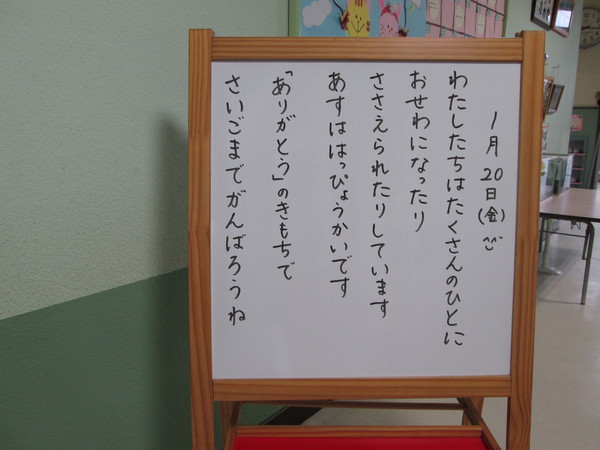 1月20日(金)
わたしたちはたくさんのひとに
おせわになったり
ささえられたりしています
あすははっぴょうかいです
「ありがとう」のきもちで
さいごまでがんばろうね